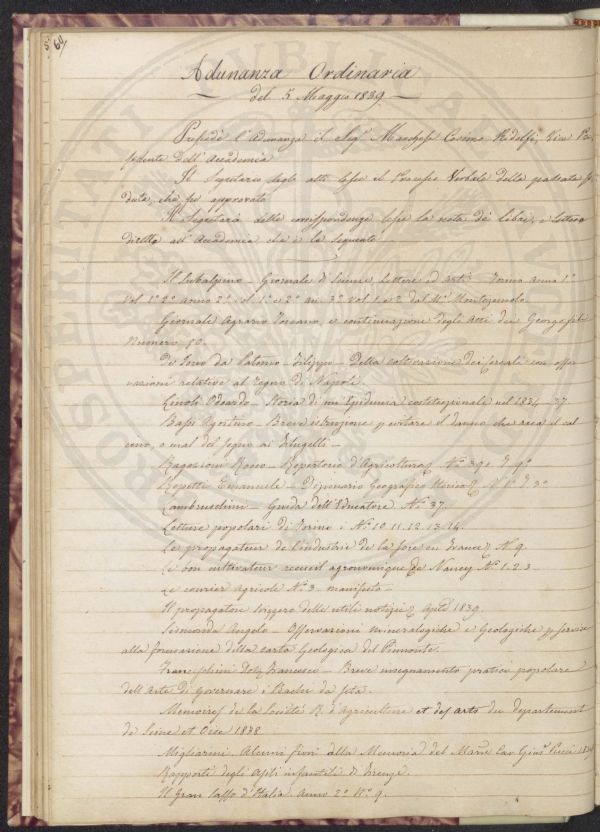 60
Adunanza Ordinaria
del 5 Maggio 1839
Presiedè l'Adunanza il Sigr. Marchese Cosimo Ridolfi, Vice Pre-
sidente dell'Accademia
Il Segretario degli atti lesse il Processo Verbale della passata se-
duta, che fu approvato
Il Segretario delle corrispondenze lesse la nota dei libri, e lettere
dirette all'Accademia che è la seguente
Il Subalpino – Giornale di Scienze, Lettere ed Arti – Torino anno 1°
Vol 1° 2° Anno 2° vol 1° e 2° an. 3° vol 1 e 2 dal Mse Montezemolo
Giornale Agrario Toscano, e continuazione degli Atti dei Georgofili
Numero 50.
De Jorio da Paterno – Filippo – Della coltivazione dei Cereali con osser-
vazioni relative al regno di Napoli.
Linoli Odoardo – Storia di un Epidemia costituzionale nel 1834–37
Bassi Agostino – Breve istruzione p evitare il danno che reca il cal
cino, o mal del segno ai Filugelli –
Ragazzoni Rocco – Repertorio d'Agricoltura No 39. T 9°
Repetti Emanuele – Dizionario Geografico Storico No 1° T 3°
Lambruschini – Guida dell'Educatore No 37.
Letture popolari di Torino i No 10. 11. 12. 13. 14.
Le propagateur de l'industrie de la soie en France No 9.
Le bon cultivateur recueil agronomique de Nancy No 1. 2. 3
Le courier agricole No 3. manifesto –
Il propagatore svizzero delle utili notizie Aple 1839.
Sismonda Angelo – Osservazioni mineralogiche e Geologiche p servire
alla formazione della carta Geologica del Piemonte.
Franceschini Dott Francesco – Breve insegnamento pratico popolare
dell'Arte di governare i Bachi da Seta.
Memoires de la Société R. d'Agriculture et des arts du departement
de Seine et Oise 1838.
Migliarini. Alcuni fiori alla Memoria del March Cav Gius. Pucci 1839
Rapporti degli Asili infantili di Firenze.
Il Gran Sasso d'Italia anno 2° No 9.